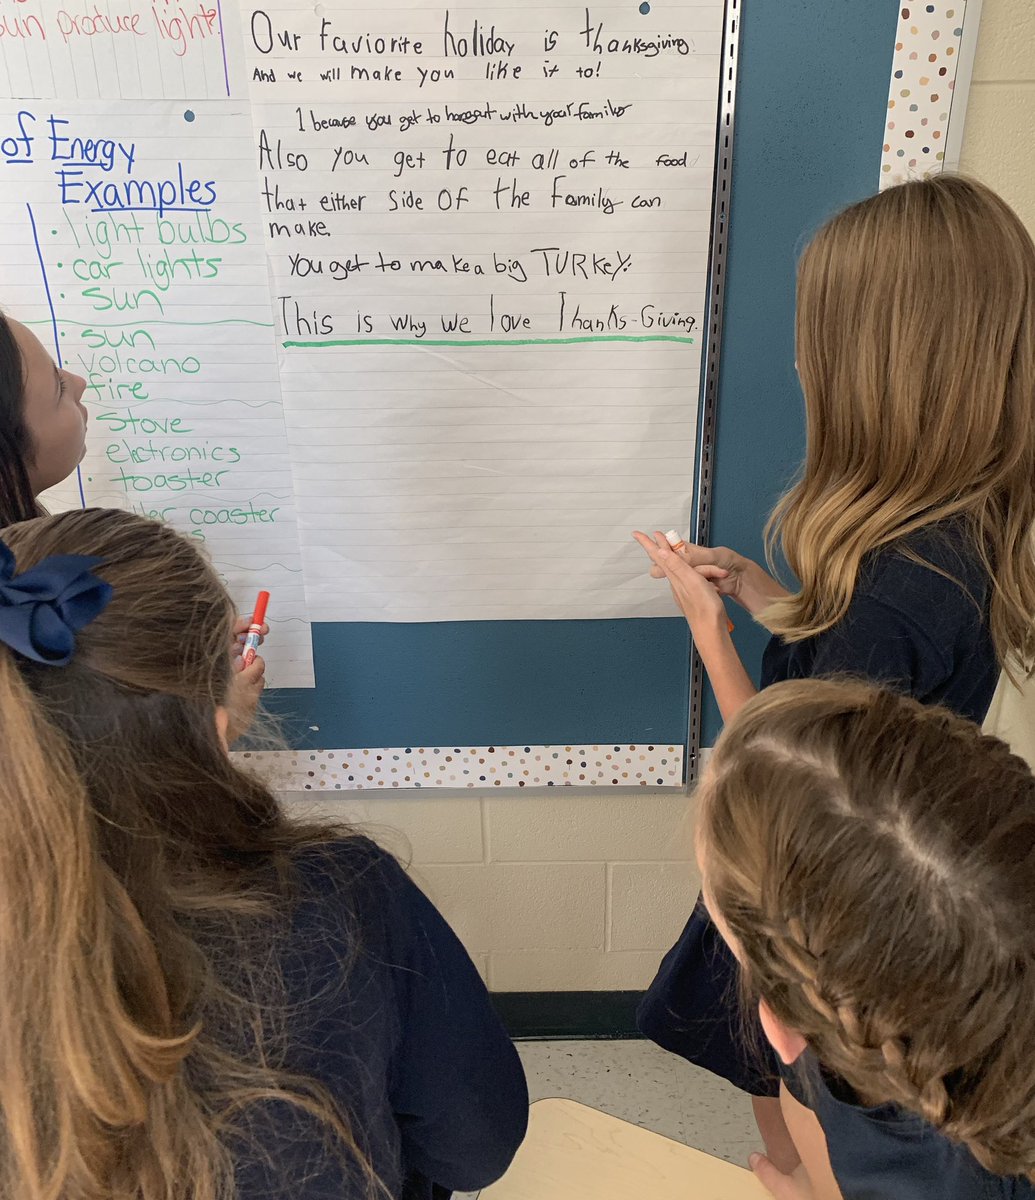 sun produce light?
Our Faviorite holiday is thanksgiving
And we will make you like it to!
1 because you get to hangout with your familys
Also you get to eat all of the food
that either side of the Family can
make.
You get to make a big TURKEY.
This is why we love Thanks-Giving.
of Energy
Examples
• light bulbs
• car lights
• sun
• sun
• volcano
fire
stove
electronics
• toaster
coaster